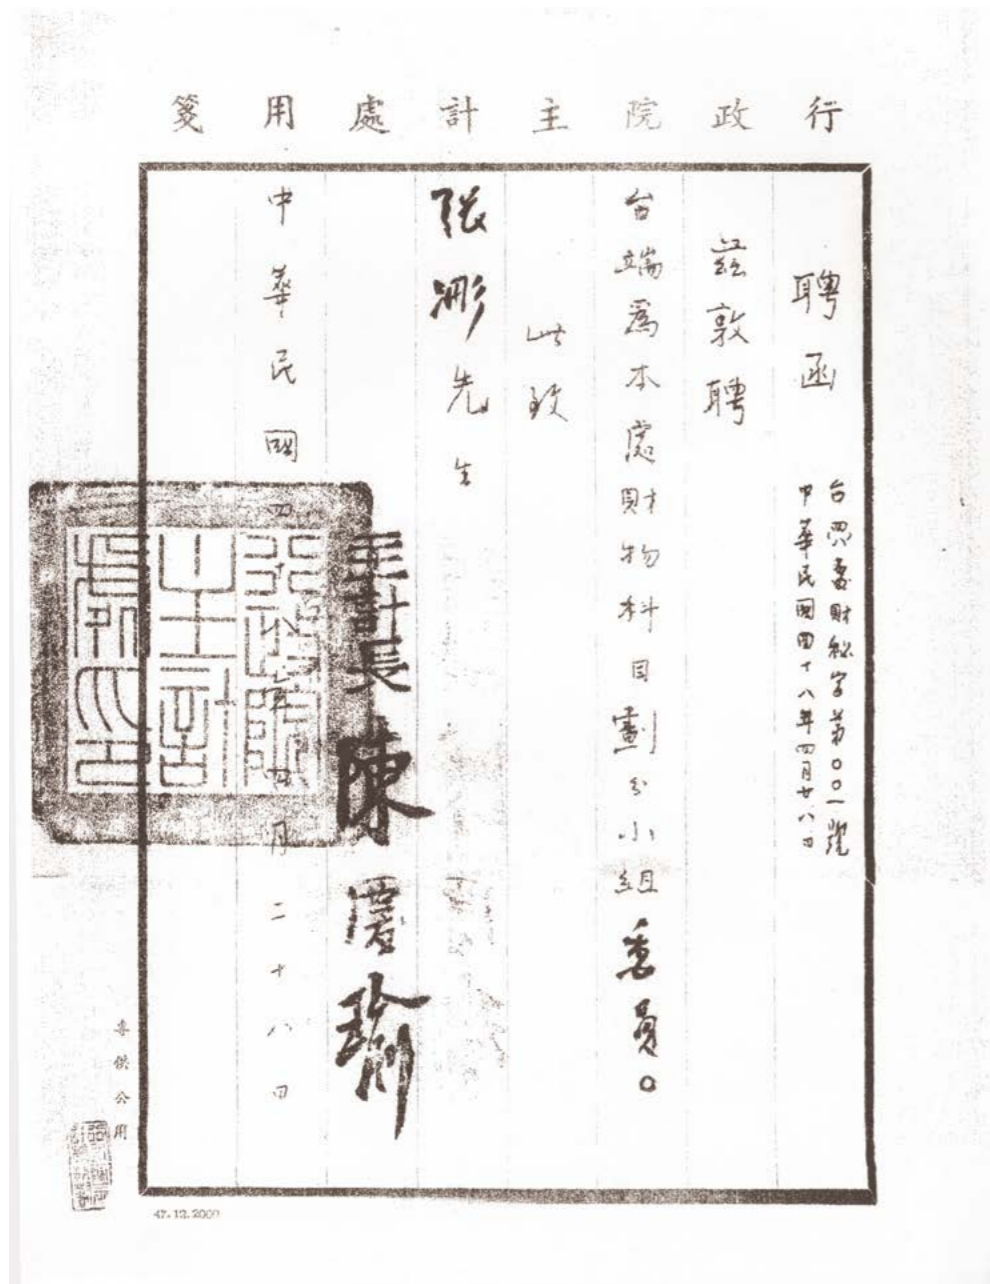 行政院主計處用箋
聘函
台四八處財秘字第〇〇一號
中華民國四十八年四月廿八日
茲敦聘
台端為本處財物科目劃分小組委員。
此致
張彬先生
主計長陳慶瑜
中華民國四 年四月二十八日
專供公用
47.12.2000